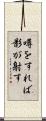 噂をすれば
影が射す